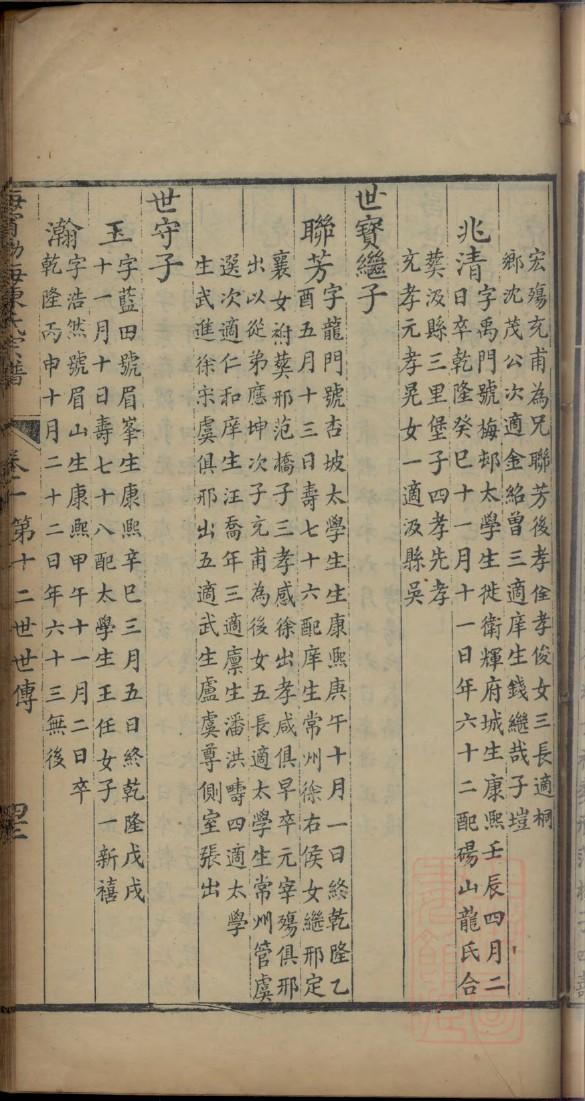 宏殤充甫為兄聯芳後孝佺孝俊女三長適桐
鄉沈茂公次適金紹曾三適庠生錢繼哉子塏
兆清
字禹門號梅邨太學生徙衛輝府城生康熙壬辰四月二
日卒乾隆癸巳十一月十一日年六十二配碭山龍氏合
葬汲縣三里堡子四孝先孝
充孝元孝晃女一適汲縣吳
世寶繼子
聯芳
字龍門號杏坡太學生生康熙庚午十月一日終乾隆乙
酉五月十三日壽七十六配庠生常州徐右侯女繼邢定
襄女祔葬邢范橋子三孝感徐出孝咸俱早卒元宰殤俱邢
出以從弟應坤次子充甫為後女五長適太學生常州管虞
選次適仁和庠生汪喬年三適廩生潘洪疇四適太學
生武進徐宋虞俱邢出五適武生盧虞尊側室張出
世守子
玉
字藍田號眉峯生康熙辛巳三月五日終乾隆戊戌
十一月十日壽七十八配太學生王任女子一新禧
瀚
字浩然號眉山生康熙甲午十一月二日卒
乾隆丙申十月二十二日年六十三無後
海寧渤海陳氏宗譜
卷十一
第十二世世傳